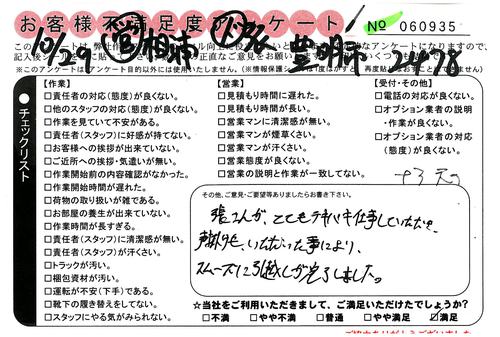 お客様不満足度アンケート!
No 060935
10/29 相浦 豊明市 2478
このアンケートは、弊社作
記入後シー
※このアンケートは
チェックリスト
【作業】
□責任者の対応(態度)が良くない。
□他のスタッフの対応(態度)が良くない。
□作業を見ていて不安がある。
□責任者(スタッフ)に好感が持てない。
□お客様への挨拶が出来ていない。
□ご近所への挨拶・気遣いが無い。
□作業開始前の内容確認がなかった。
□作業開始時間が遅れた。
□荷物の取り扱いが雑である。
□お部屋の養生が出来ていない。
□作業時間が長すぎる。
□責任者(スタッフ)に清潔感が無い。
□責任者(スタッフ)が汗くさい。
□トラックが汚い。
□梱包資材が汚い。
□運転が不安(下手)である。
□靴下の履き替えをしてない。
□スタッフにやる気がみられない。
【営業】
□見積もり時間に遅れた。
□見積もり時間が長い。
□営業マンに清潔感が無い。
□営業マンが煙草くさい。
□営業マンが汗くさい。
□営業態度が良くない。
□営業の説明と作業が一致してない。
【受付・その他】
□電話の対応が良くない。
□オプション業者の説明
・作業が良くない。
□オプション業者の対応
(態度)が良くない。
その他、ご意見・ご要望等ありましたらお書き下さい。
張さんが、とてもテキパキ仕事していただき、
声掛けも、いただいた事により、
スムーズに引越しが完了しました。
☆当社をご利用いただきまして、ご満足いただけたでしょうか?
□不満 □やや不満 □普通 □やや満足 ☑満足
ご協力ありがとうございました